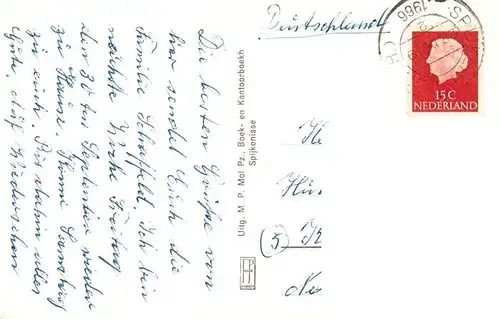 Die besten Grüße von
hier sendet Euch die
Familie Schaffeld. Ich bin
nächste Woche Freitag
der 30 ten September wieder
zu Hause. Komme Samstag
zu euch. Bis dahin alles
Gute. Auf Wiedersehen
Uitg. M. P. Mol Pz., Boek- en Kantoorboekh
Spijkenisse
Deutschland
1966
15 C
NEDERLAND